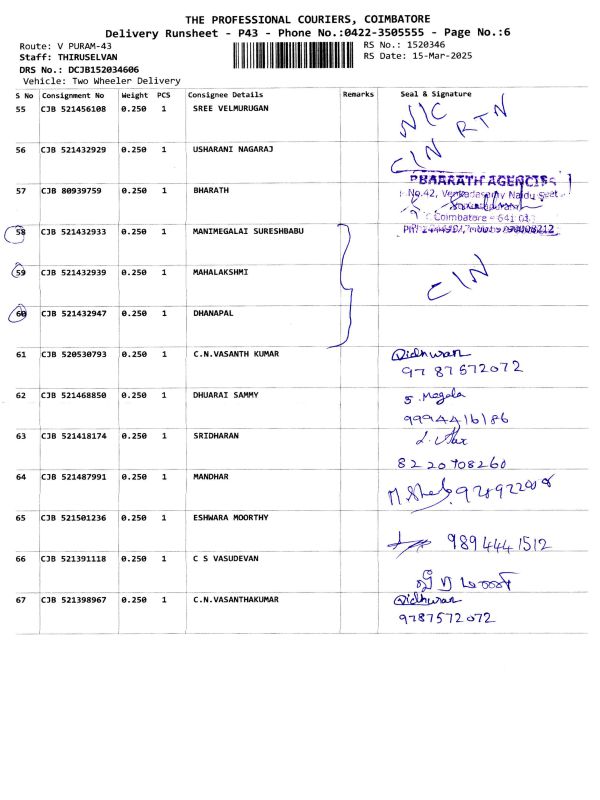 THE PROFESSIONAL COURIERS, COIMBATORE
Delivery Runsheet - P43 - Phone No.:0422-3505555 - Page No.:6
Route: V PURAM-43
RS No.: 1520346
Staff: THIRUSELVAN
RS Date: 15-Mar-2025
DRS No.: DCJB152034606
Vehicle: Two Wheeler Delivery
S No Consignment No Weight PCS Consignee Details Remarks Seal & Signature
55 CJB 521456108 0.250 1 SREE VELMURUGAN N/C RTN
56 CJB 521432929 0.250 1 USHARANI NAGARAJ C/N
BHARRATH AGENCIES
57 CJB 80939759 0.250 1 BHARATH No.42, Venkadasamy Naidu Seet
Coimbatore - 641
58 CJB 521432933 0.250 1 MANIMEGALAI SURESHBABU
59 CJB 521432939 0.250 1 MAHALAKSHMI C/N
60 CJB 521432947 0.250 1 DHANAPAL
61 CJB 520530793 0.250 1 C.N.VASANTH KUMAR Vidhwan
97 87 572072
62 CJB 521468850 0.250 1 DHUARAI SAMMY S. Megala
9994416186
63 CJB 521418174 0.250 1 SRIDHARAN
8220708260
64 CJB 521487991 0.250 1 MANDHAR
65 CJB 521501236 0.250 1 ESHWARA MOORTHY
9894441512
66 CJB 521391118 0.250 1 C S VASUDEVAN
67 CJB 521398967 0.250 1 C.N.VASANTHAKUMAR Vidhwan
9787572072